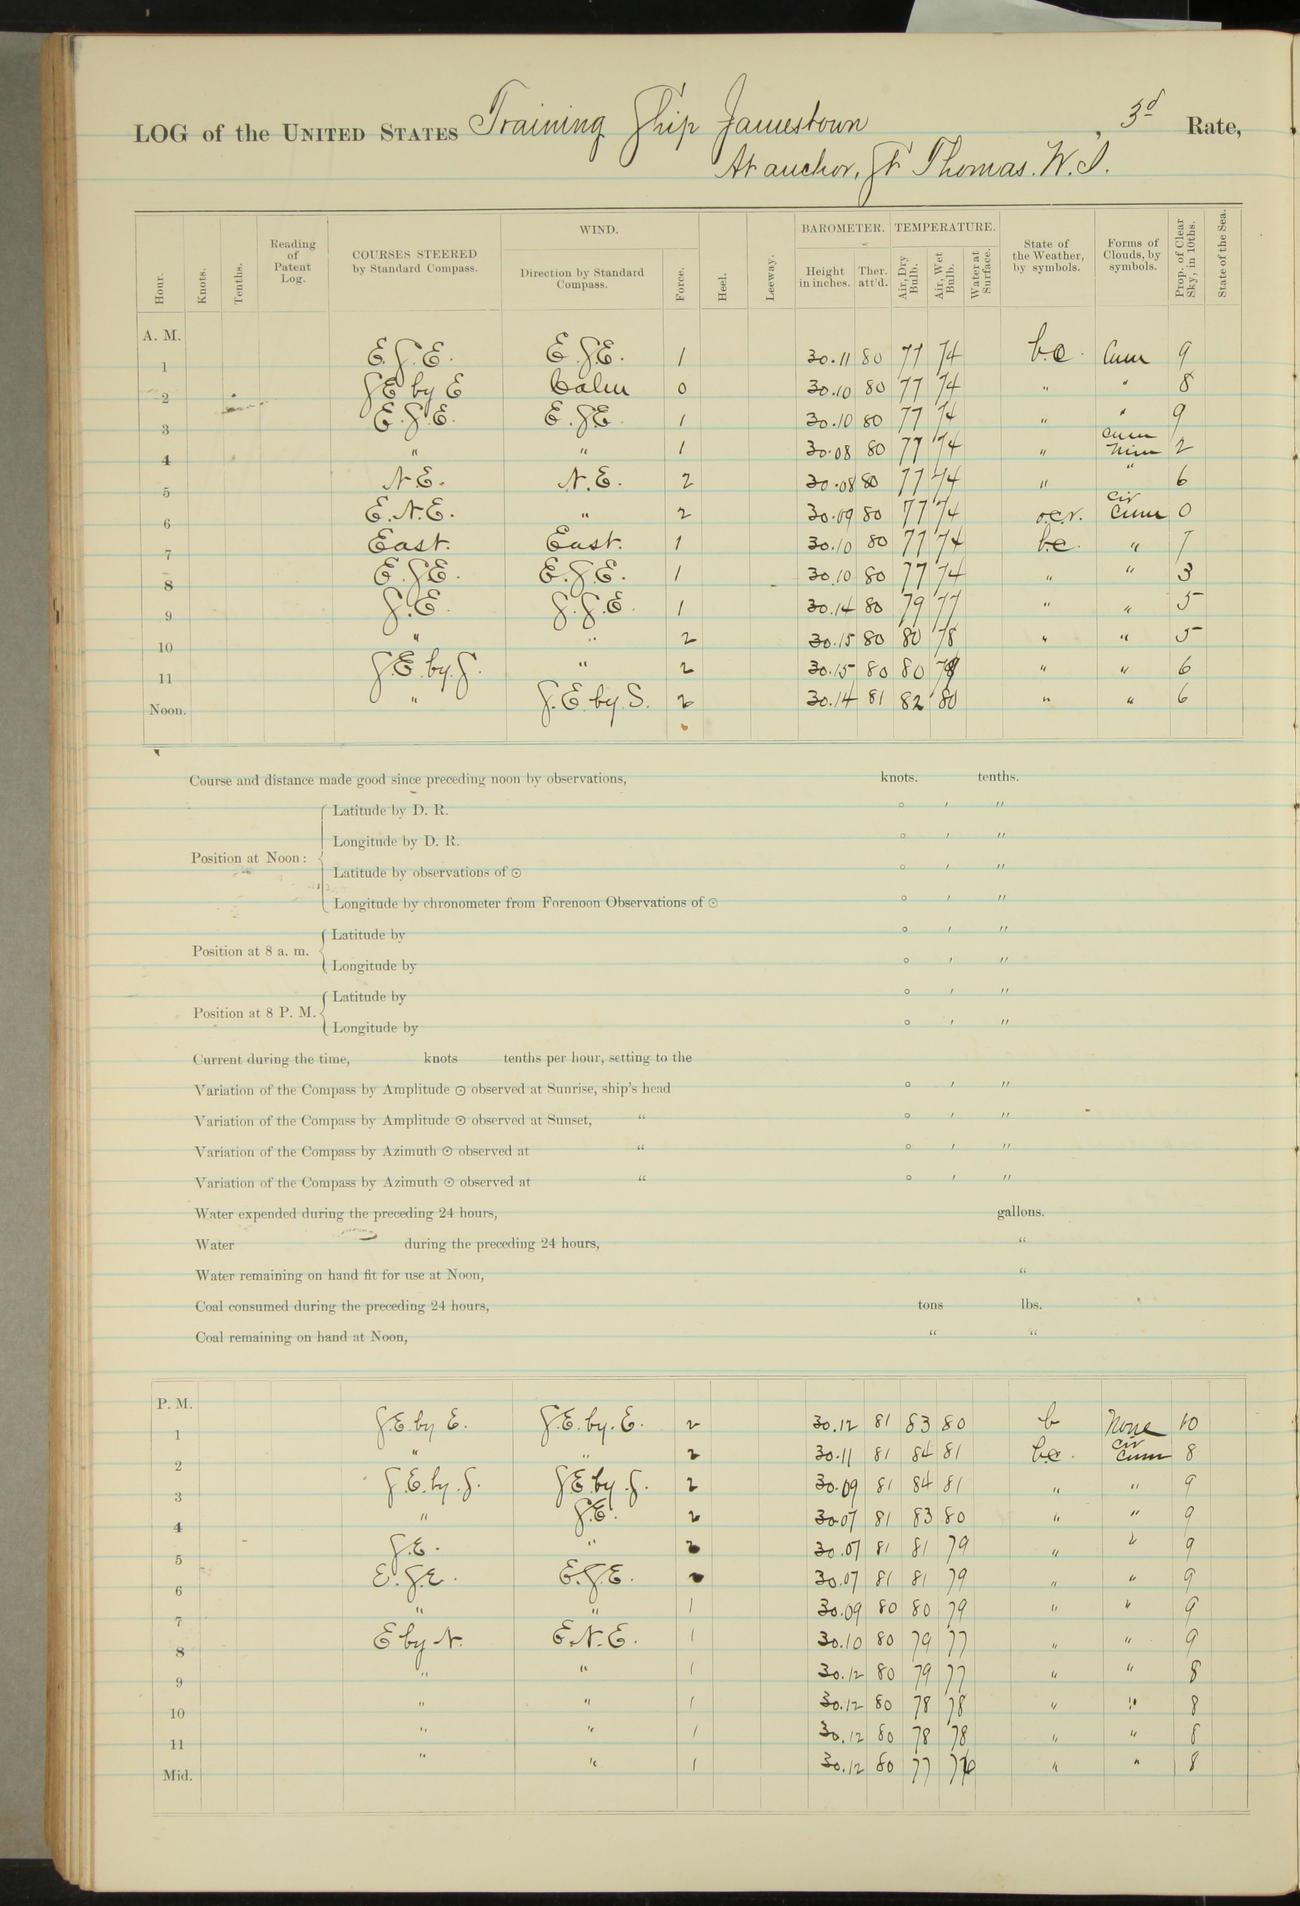 LOG of the UNITED STATES Training Ship Jamestown , 3d Rate,
At anchor, St Thomas. W. I.
Hour. Knots. Tenths. Reading of Patent Log. COURSES STEERED by Standard Compass. WIND. Direction by Standard Compass. Force. Heel. Leeway. BAROMETER. Height in inches. Ther. att'd. TEMPERATURE. Air, Dry Bulb. Air, Wet Bulb. Water at Surface. State of the Weather, by symbols. Forms of Clouds, by symbols. Prop. of Clear Sky, in 10ths. State of the Sea.
A. M.
1 E.S.E. E.SE. 1 30.11 80 77 74 b.c. Cum 9
2 SE by E Calm 0 30.10 80 77 74 " " 8
3 E.S.E. E.SE. 1 30.10 80 77 74 " " 9
4 " " 1 30.08 80 77 74 " Cum Nim 2
5 N.E. N.E. 2 30.08 80 77 74 " " 6
6 E.N.E. " 2 30.09 80 77 74 o.c.r. Cir Cum 0
7 East. East. 1 30.10 80 77 74 b.c. " 7
8 E.SE. E.S.E. 1 30.10 80 77 74 " " 3
9 S.E. S.S.E. 1 30.14 80 79 77 " " 5
10 " " 2 30.15 80 80 78 " " 5
11 S.E. by S. " 2 30.15 80 80 " " 6
Noon. " S.E. by S. 2 30.14 81 82 80 " " 6
Course and distance made good since preceding noon by observations, knots. tenths.
Position at Noon: Latitude by D. R. ° ′ ″
Longitude by D. R. ° ′ ″
Latitude by observations of ☉ ° ′ ″
Longitude by chronometer from Forenoon Observations of ☉ ° ′ ″
Position at 8 a. m. Latitude by ° ′ ″
Longitude by ° ′ ″
Position at 8 P. M. Latitude by ° ′ ″
Longitude by ° ′ ″
Current during the time, knots tenths per hour, setting to the
Variation of the Compass by Amplitude ☉ observed at Sunrise, ship's head ° ′ ″
Variation of the Compass by Amplitude ☉ observed at Sunset, " ° ′ ″
Variation of the Compass by Azimuth ☉ observed at " ° ′ ″
Variation of the Compass by Azimuth ☉ observed at " ° ′ ″
Water expended during the preceding 24 hours, gallons.
Water during the preceding 24 hours, "
Water remaining on hand fit for use at Noon, "
Coal consumed during the preceding 24 hours, tons lbs.
Coal remaining on hand at Noon, " "
P. M.
1 S.E. by E. S.E. by E. 2 30.12 81 83 80 b None 10
2 " " 2 30.11 81 84 81 b.c. Cir Cum 8
3 S.E. by S. SE by S. 2 30.09 81 84 81 " " 9
4 " S.E. 2 30.07 81 83 80 " " 9
5 S.E. " 2 30.07 81 81 79 " " 9
6 E.S.E. E.S.E. 2 30.07 81 81 79 " " 9
7 " " 1 30.09 80 80 79 " " 9
8 E by N. E.N.E. 1 30.10 80 79 77 " " 9
9 " " 1 30.12 80 79 77 " " 8
10 " " 1 30.12 80 78 78 " " 8
11 " " 1 30.12 80 78 78 " " 8
Mid. " " 1 30.12 80 77 76 " " 8